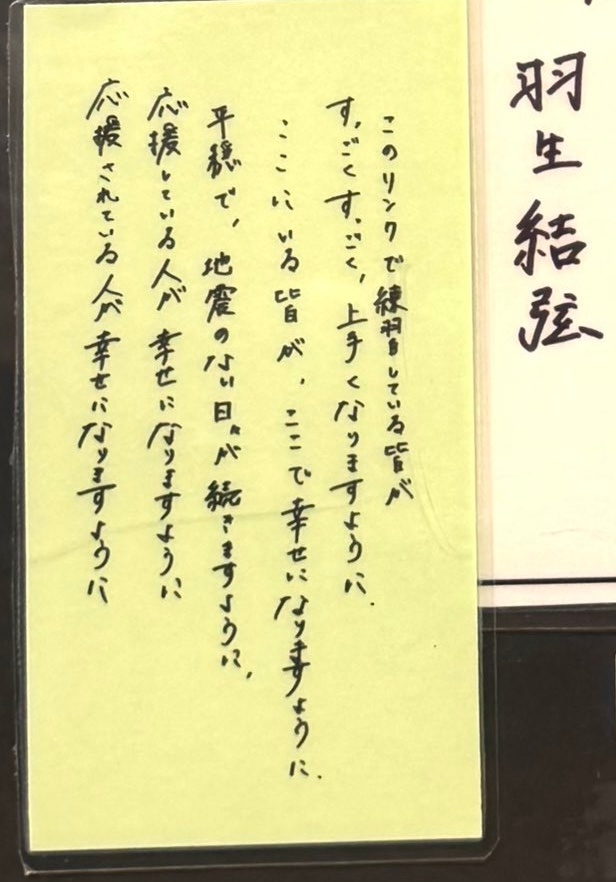 羽生結弦
このリンクで練習している皆が
すごくすごく、上手くなりますように.
ここにいる皆が、ここで幸せになりますように.
平穏で、地震のない日々が続きますように、
応援している人が幸せになりますように
応援されている人が幸せになりますように